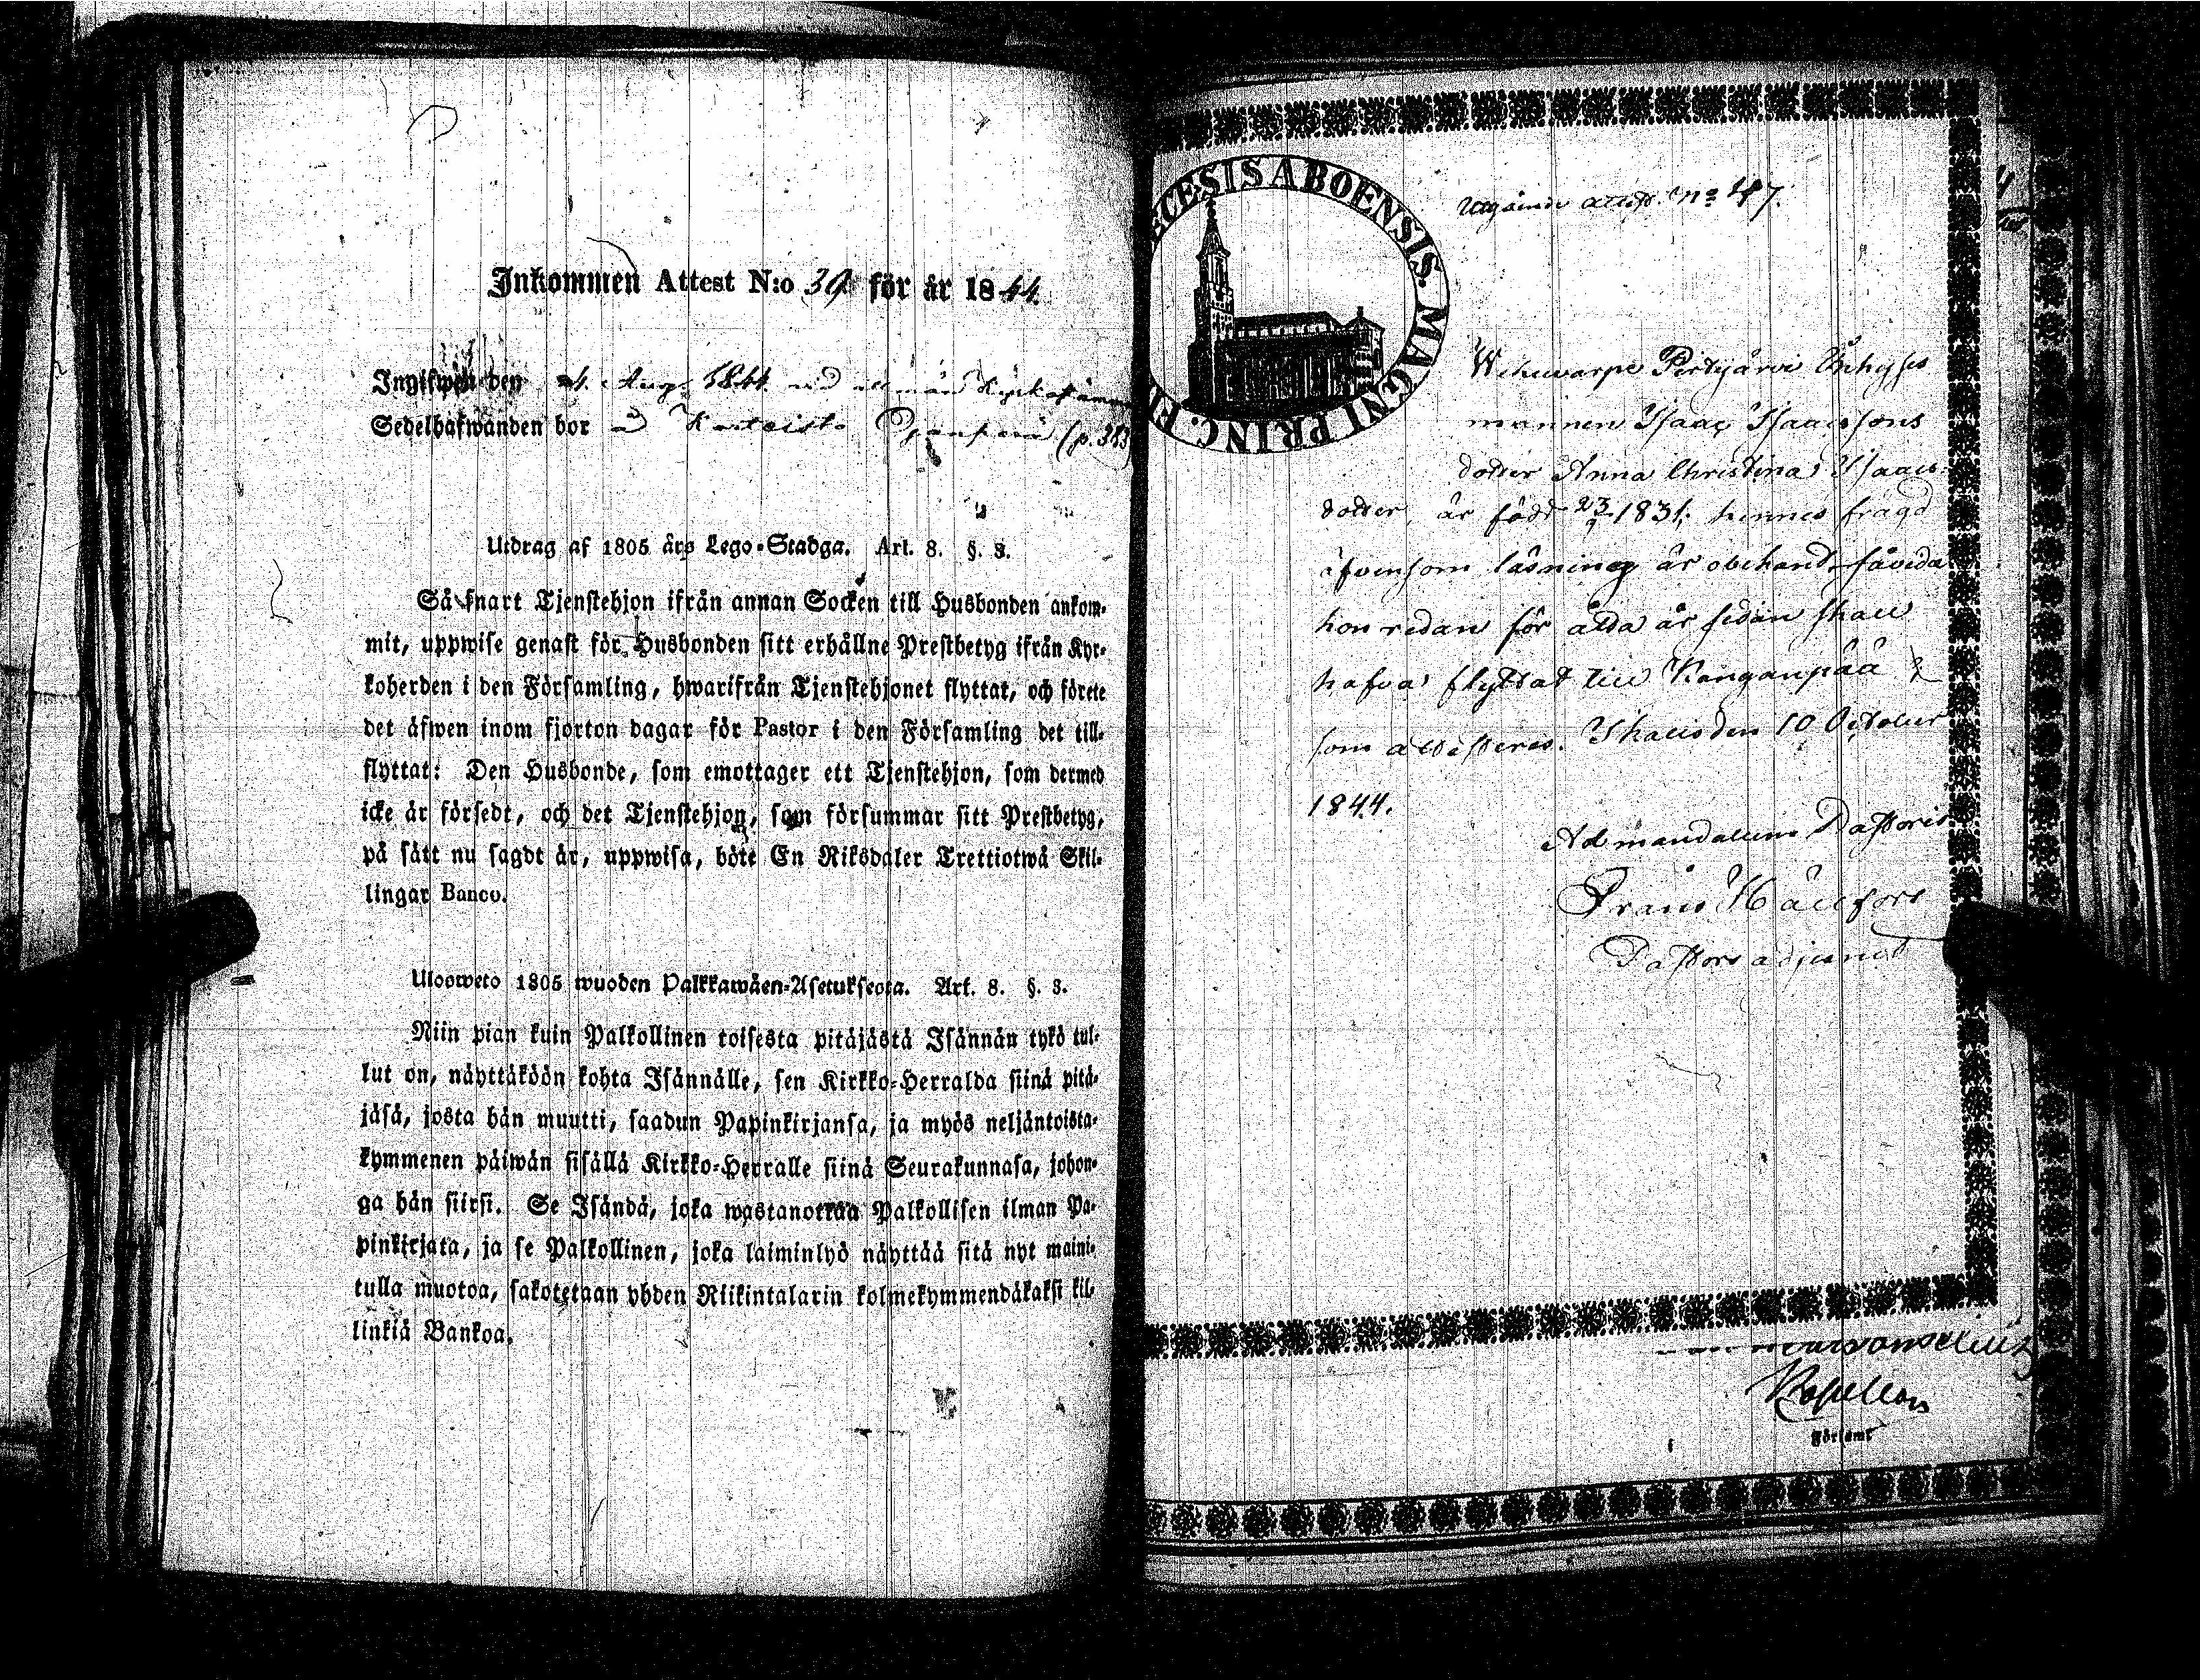 Inkommen Attest N:o 39 för år 1844.
Ingifwen den 4. Aug. 1844 vid allmän
Sedelhafwanden bor (p. 383)
Utdrag af 1805 års Lego-Stadga. Art. 8. §. 3.
Så snart Tjenstehjon ifrån annan Socken till Husbonden ankom-
mit, uppwise genast för Husbonden sitt erhållne Prestbetyg ifrån Kyr-
koherden i den Församling, hwarifrån Tjenstehjonet flyttat, och förete
det äfwen inom fjorton dagar för Pastor i den Församling det till-
flyttat: Den Husbonde, som emottager ett Tjenstehjon, som dermed
icke är försedt, och det Tjenstehjon, som försummar sitt Prestbetyg,
på sätt nu sagdt är, uppwisa, böte En Riksdaler Trettiotwå Skil-
lingar Banco.
Uloosweto 1805 wuoden Palkkawäen-Asetuksesta. Art. 8. §. 3.
Niin pian kuin Palkollinen toisesta pitäjästä Isännän tykö tul-
lut on, näyttäköön kohta Isännälle, sen Kirkko-Herralda siinä pitä-
jäsä, josta hän muutti, saadun Papinkirjansa, ja myös neljäntoista-
kymmenen päiwän sisällä Kirkko-Herralle siinä Seurakunnasa, johon-
ga hän siirsi. Se Isändä, joka wastanottaa Palkollisen ilman Pa-
pinkirjata, ja se Palkollinen, joka laiminlyö näyttää sitä nyt maini-
tulla muotoa, sakotetaan yhden Riikintalarin kolmekymmendäkaksi kil-
linkiä Bankoa.
ECESIS ABOENSIS. MAGNI PRINC. FI
Utgående attest. No 47.
Wehuwarpe Pertjärvi Inhyses
mannen Isaac Isaacssons
dotter Anna Christina Isaacs-
dotter, är född 23/9 1831; hennes frägd
äfvensom läsning är obekand, såvida
hon redan för åtta år sedan skall
hafva flyttat till Kanganpää
som attesteras. Ikalis den 10 October
1844.
Ad mandatum Pastoris
Frans Hällfors
Pastors adjunct
Kapellan
Församl